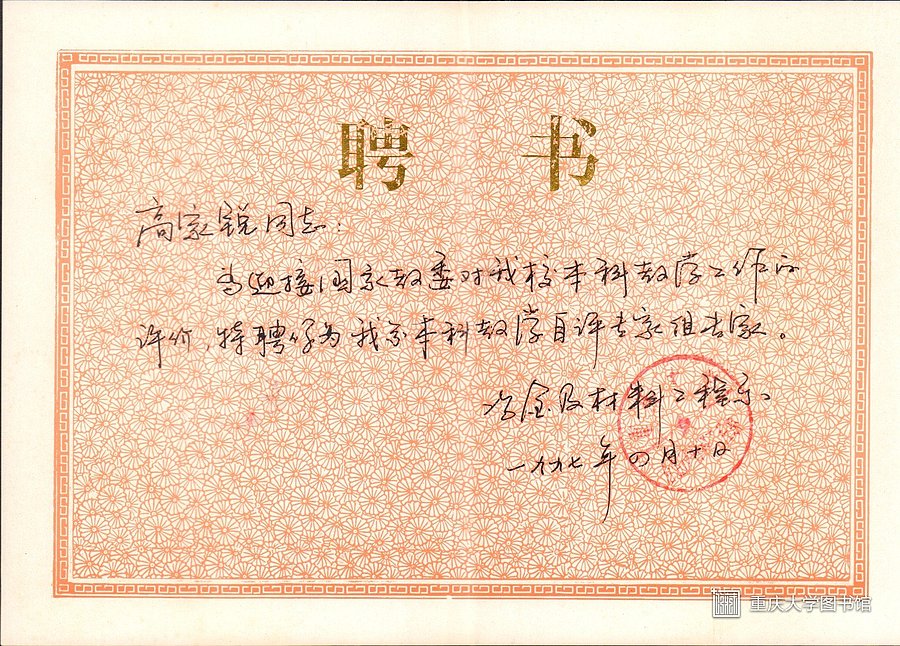 聘书
高家锐同志：
为迎接国家教委对我校本科教学工作的
评价，特聘你为我系本科教学自评专家组专家。
冶金及材料工程系
一九九七年四月十日
重庆大学图书馆